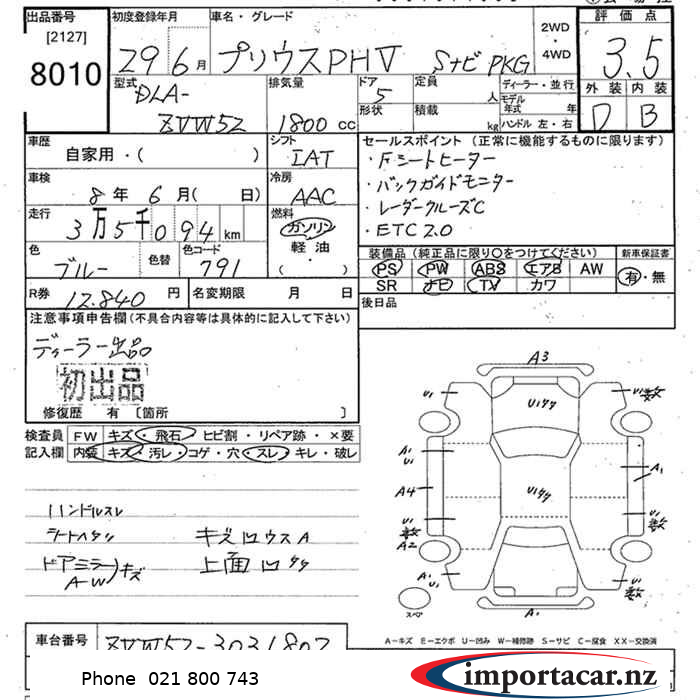 出品番号 初度登録年月 車名・グレード 2WD・4WD 評価点
[2127]
8010
29 6月 プリウスPHV SナビPKG 3.5
型式 排気量 ドア 定員 人 ディーラー・並行 外装 内装
DLA-
ZVW52 1800 cc 5 形状 積載 kg モデル年式 年 ハンドル 左・右 D B
車歴 シフト セールスポイント (正常に機能するものに限ります)
自家用・( ) IAT ・Fシートヒーター
車検 冷房 ・バックガイドモニター
8年 6月( 日) AAC ・レーダークルーズC
走行 燃料 ・ETC 2.0
3万5千094 km ガソリン
軽油
・( )
色 色替 色コード 装備品 (純正品に限り○をつけてください) 新車保証書
ブルー 791 PS PW ABS エアB AW 有・無
SR ナビ TV カワ
R券 12.840円 名変期限 月 日 後日品
注意事項申告欄(不具合内容等は具体的に記入して下さい)
ディーラー出品
初出品
修復歴 有 [箇所 ]
検査員 FW キズ・飛石・ヒビ割・リペア跡・×要
記入欄 内装 キズ・汚レ・コゲ・穴・スレ・キレ・破レ
ハンドルスレ
シートヘタリ キズ凹ウスA
ドアミラー
AW キズ 上面凹
A3
U1 U1
A1
U1 A1
A4
U1 U1
A2
A1 U1 U1
スペア A1
A-キズ E-エクボ U-凹み W-補修跡 S-サビ C-腐食 XX-交換済
車台番号 ZVW52-3031802
Phone 021 800 743
importacar.nz